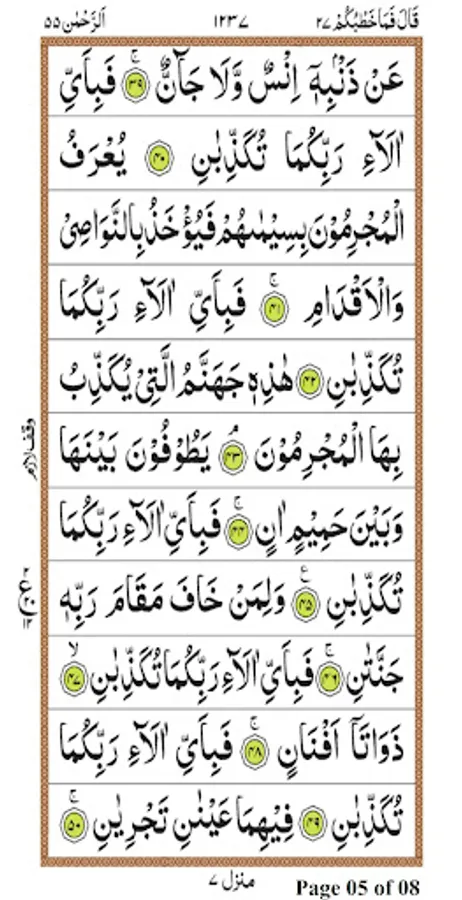 قَالَ فَمَا خَطْبُكُمْ ٢٧ ١٢٣٧ اَلرَّحْمٰن ٥٥
عَنْ ذَنْۢبِهٖۤ اِنْسٌ وَّلَا جَآنٌّ ۚ ﴿۳۹﴾ فَبِاَيِّ
اٰلَآءِ رَبِّكُمَا تُكَذِّبٰنِ ﴿۴۰﴾ يُعْرَفُ
الْمُجْرِمُوْنَ بِسِيْمٰىهُمْ فَيُؤْخَذُ بِالنَّوَاصِيْ
وَالْاَقْدَامِ ۚ ﴿۴۱﴾ فَبِاَيِّ اٰلَآءِ رَبِّكُمَا
تُكَذِّبٰنِ ﴿۴۲﴾ هٰذِهٖ جَهَنَّمُ الَّتِيْ يُكَذِّبُ
بِهَا الْمُجْرِمُوْنَ ۘ ﴿۴۳﴾ يَطُوْفُوْنَ بَيْنَهَا
وقف لازم
وَبَيْنَ حَمِيْمٍ اٰنٍ ۚ ﴿۴۴﴾ فَبِاَيِّ اٰلَآءِ رَبِّكُمَا
تُكَذِّبٰنِ ﴿۴۵﴾ وَلِمَنْ خَافَ مَقَامَ رَبِّهٖ
ع
جَنَّتٰنِ ۚ ﴿۴۶﴾ فَبِاَيِّ اٰلَآءِ رَبِّكُمَا تُكَذِّبٰنِ ۙ ﴿۴۷﴾
ذَوَاتَاۤ اَفْنَانٍ ۚ ﴿۴۸﴾ فَبِاَيِّ اٰلَآءِ رَبِّكُمَا
تُكَذِّبٰنِ ﴿۴۹﴾ فِيْهِمَا عَيْنٰنِ تَجْرِيٰنِ ۚ ﴿۵۰﴾
منزل ٧
Page 05 of 08